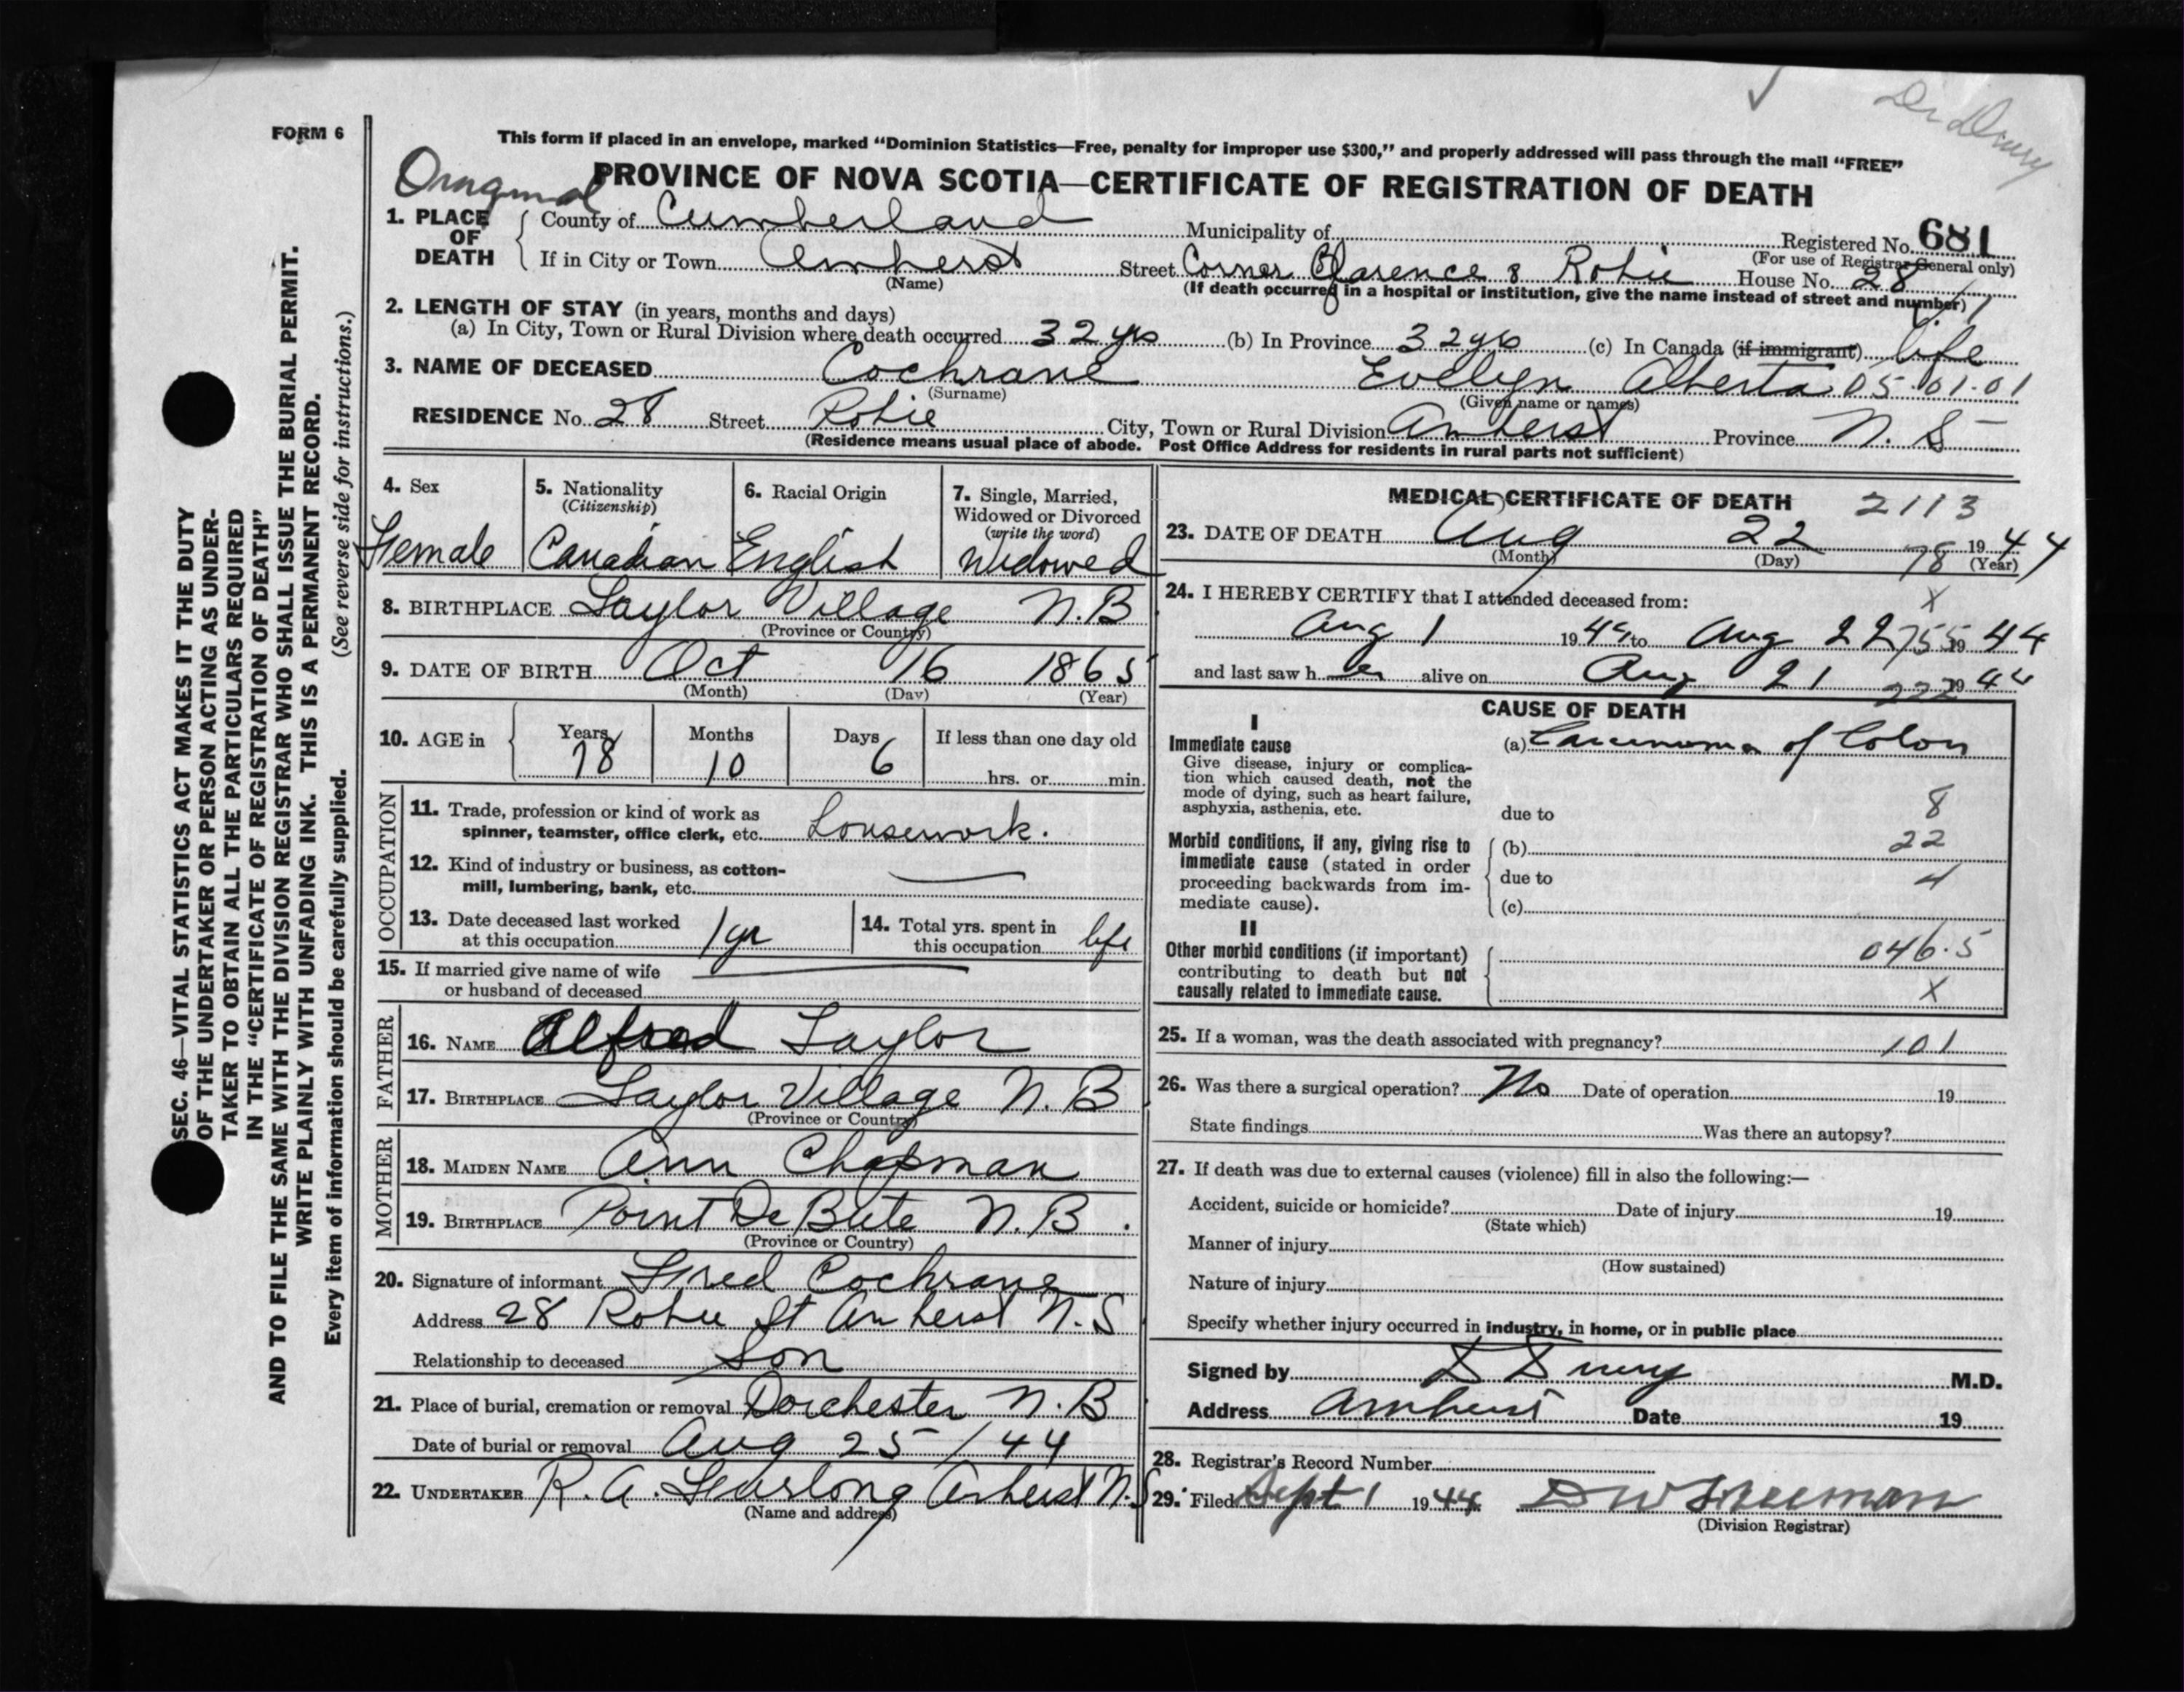 Dr Drury
FORM 6
This form if placed in an envelope, marked “Dominion Statistics—Free, penalty for improper use $300,” and properly addressed will pass through the mail “FREE”
Original
PROVINCE OF NOVA SCOTIA—CERTIFICATE OF REGISTRATION OF DEATH
1. PLACE OF DEATH County of Cumberland Municipality of Registered No. 681
(For use of Registrar General only)
If in City or Town Amherst Street Corner Clarence & Robie House No. 28
(Name) (If death occurred in a hospital or institution, give the name instead of street and number)
2. LENGTH OF STAY (in years, months and days)
(a) In City, Town or Rural Division where death occurred 32 yrs (b) In Province 32 yrs (c) In Canada (if immigrant) life
3. NAME OF DECEASED Cochrane Evelyn Alberta 05.01.01
(Surname) (Given name or names)
RESIDENCE No. 28 Street Robie City, Town or Rural Division Amherst Province N. S
(Residence means usual place of abode. Post Office Address for residents in rural parts not sufficient)
4. Sex 5. Nationality 6. Racial Origin 7. Single, Married,
(Citizenship) Widowed or Divorced
(write the word)
Female Canadian English Widowed
8. BIRTHPLACE Taylor Village N.B
(Province or Country)
9. DATE OF BIRTH Oct 16 1865
(Month) (Day) (Year)
10. AGE in Years Months Days If less than one day old
78 10 6 hrs. or min.
OCCUPATION
11. Trade, profession or kind of work as
spinner, teamster, office clerk, etc. Housework.
12. Kind of industry or business, as cotton-
mill, lumbering, bank, etc.
13. Date deceased last worked
at this occupation 1 yr
14. Total yrs. spent in
this occupation life
15. If married give name of wife
or husband of deceased
FATHER
16. NAME Alfred Taylor
17. BIRTHPLACE Taylor Village N. B
(Province or Country)
MOTHER
18. MAIDEN NAME Ann Chapman
19. BIRTHPLACE Point De Bute N. B.
(Province or Country)
20. Signature of informant Fred Cochrane
Address 28 Robie St Amherst N. S
Relationship to deceased Son
21. Place of burial, cremation or removal Dorchester N. B
Date of burial or removal Aug 25/44
22. UNDERTAKER R. A. Furlong Amherst N.S
(Name and address)
MEDICAL CERTIFICATE OF DEATH 2113
23. DATE OF DEATH Aug 22 1944
(Month) (Day) (Year)
78
24. I HEREBY CERTIFY that I attended deceased from: X
Aug 1 1944 to Aug 22 1944
755
and last saw her alive on Aug 21 1944
222
CAUSE OF DEATH
I
Immediate cause (a) Carcinoma of Colon
Give disease, injury or complica-
tion which caused death, not the
mode of dying, such as heart failure,
asphyxia, asthenia, etc.
due to 8
Morbid conditions, if any, giving rise to
immediate cause (stated in order
proceeding backwards from im-
mediate cause).
(b) 22
due to 4
(c)
II
Other morbid conditions (if important)
contributing to death but not
causally related to immediate cause.
046.5
X
25. If a woman, was the death associated with pregnancy? 101
26. Was there a surgical operation? No Date of operation 19
State findings Was there an autopsy?
27. If death was due to external causes (violence) fill in also the following:—
Accident, suicide or homicide? Date of injury 19
(State which)
Manner of injury
(How sustained)
Nature of injury
Specify whether injury occurred in industry, in home, or in public place
Signed by D Drury M.D.
Address Amherst Date 19
28. Registrar's Record Number
29. Filed Sept 1 1944
(Division Registrar)
SEC. 46—VITAL STATISTICS ACT MAKES IT THE DUTY
OF THE UNDERTAKER OR PERSON ACTING AS UNDER-
TAKER TO OBTAIN ALL THE PARTICULARS REQUIRED
IN THE “CERTIFICATE OF REGISTRATION OF DEATH”
AND TO FILE THE SAME WITH THE DIVISION REGISTRAR WHO SHALL ISSUE THE BURIAL PERMIT.
WRITE PLAINLY WITH UNFADING INK. THIS IS A PERMANENT RECORD.
Every item of information should be carefully supplied. (See reverse side for instructions.)